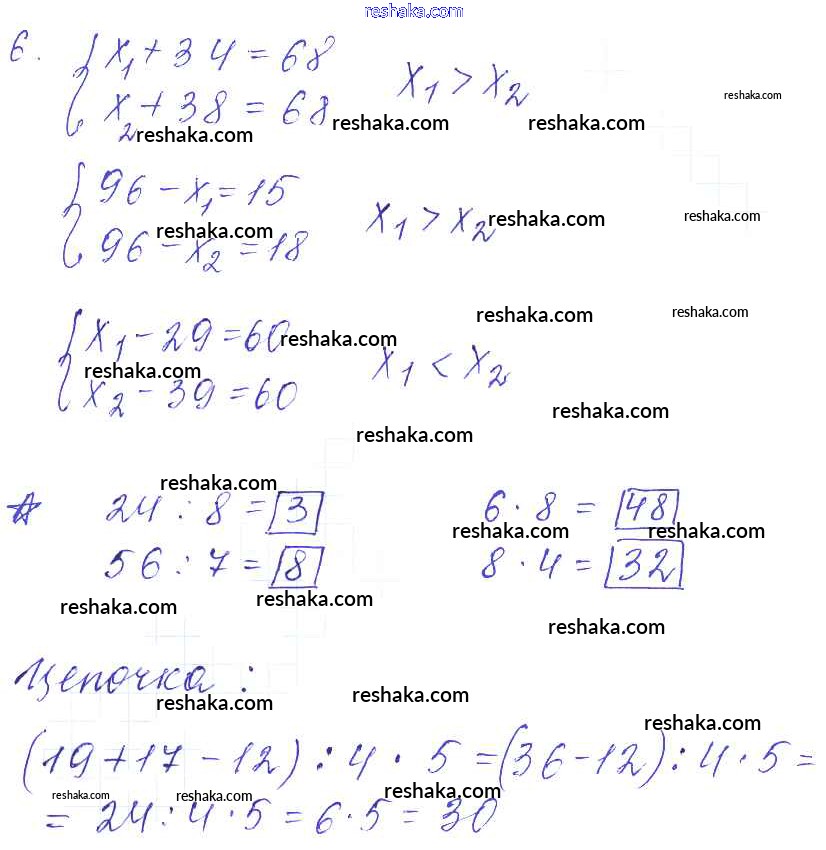 reshaka.com
6. x₁ + 34 = 68
x₂ + 38 = 68
x₁ > x₂
reshaka.com
reshaka.com reshaka.com reshaka.com
96 - x₁ = 15
96 - x₂ = 18
x₁ > x₂
reshaka.com reshaka.com reshaka.com
x₁ - 29 = 60
x₂ - 39 = 60
x₁ < x₂
reshaka.com reshaka.com
reshaka.com reshaka.com
reshaka.com
reshaka.com
reshaka.com
☆ 24 : 8 = 3 6 · 8 = 48
reshaka.com reshaka.com
56 : 7 = 8 8 · 4 = 32
reshaka.com reshaka.com
reshaka.com
Цепочка :
reshaka.com reshaka.com
reshaka.com
(19 + 17 - 12) : 4 · 5 = (36 - 12) : 4 · 5 =
reshaka.com reshaka.com reshaka.com
= 24 : 4 · 5 = 6 · 5 = 30